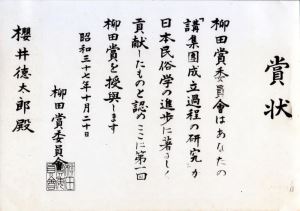 賞状
柳田賞委員會はあなたの
「講集団成立過程の研究」が
日本民俗学の進歩に著しく
貢献したものと認めここに第一回
柳田賞を授與します
昭和三十七年十月二十日
柳田賞委員會
櫻井徳太郎殿